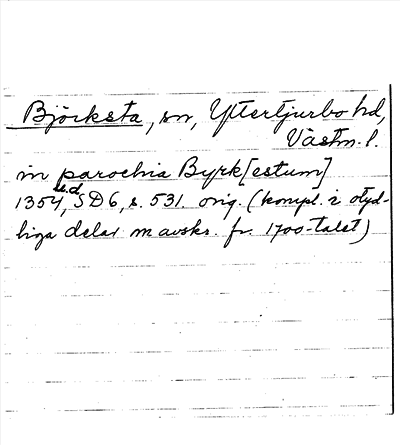 Björksta, sn, Yttertjurbo hd,
Västm. l.
in parochia Byrk[estum]
1354 u.d., SD 6, s. 531. orig. (kompl. i otyd-
liga delar m avskr. fr. 1700-talet)